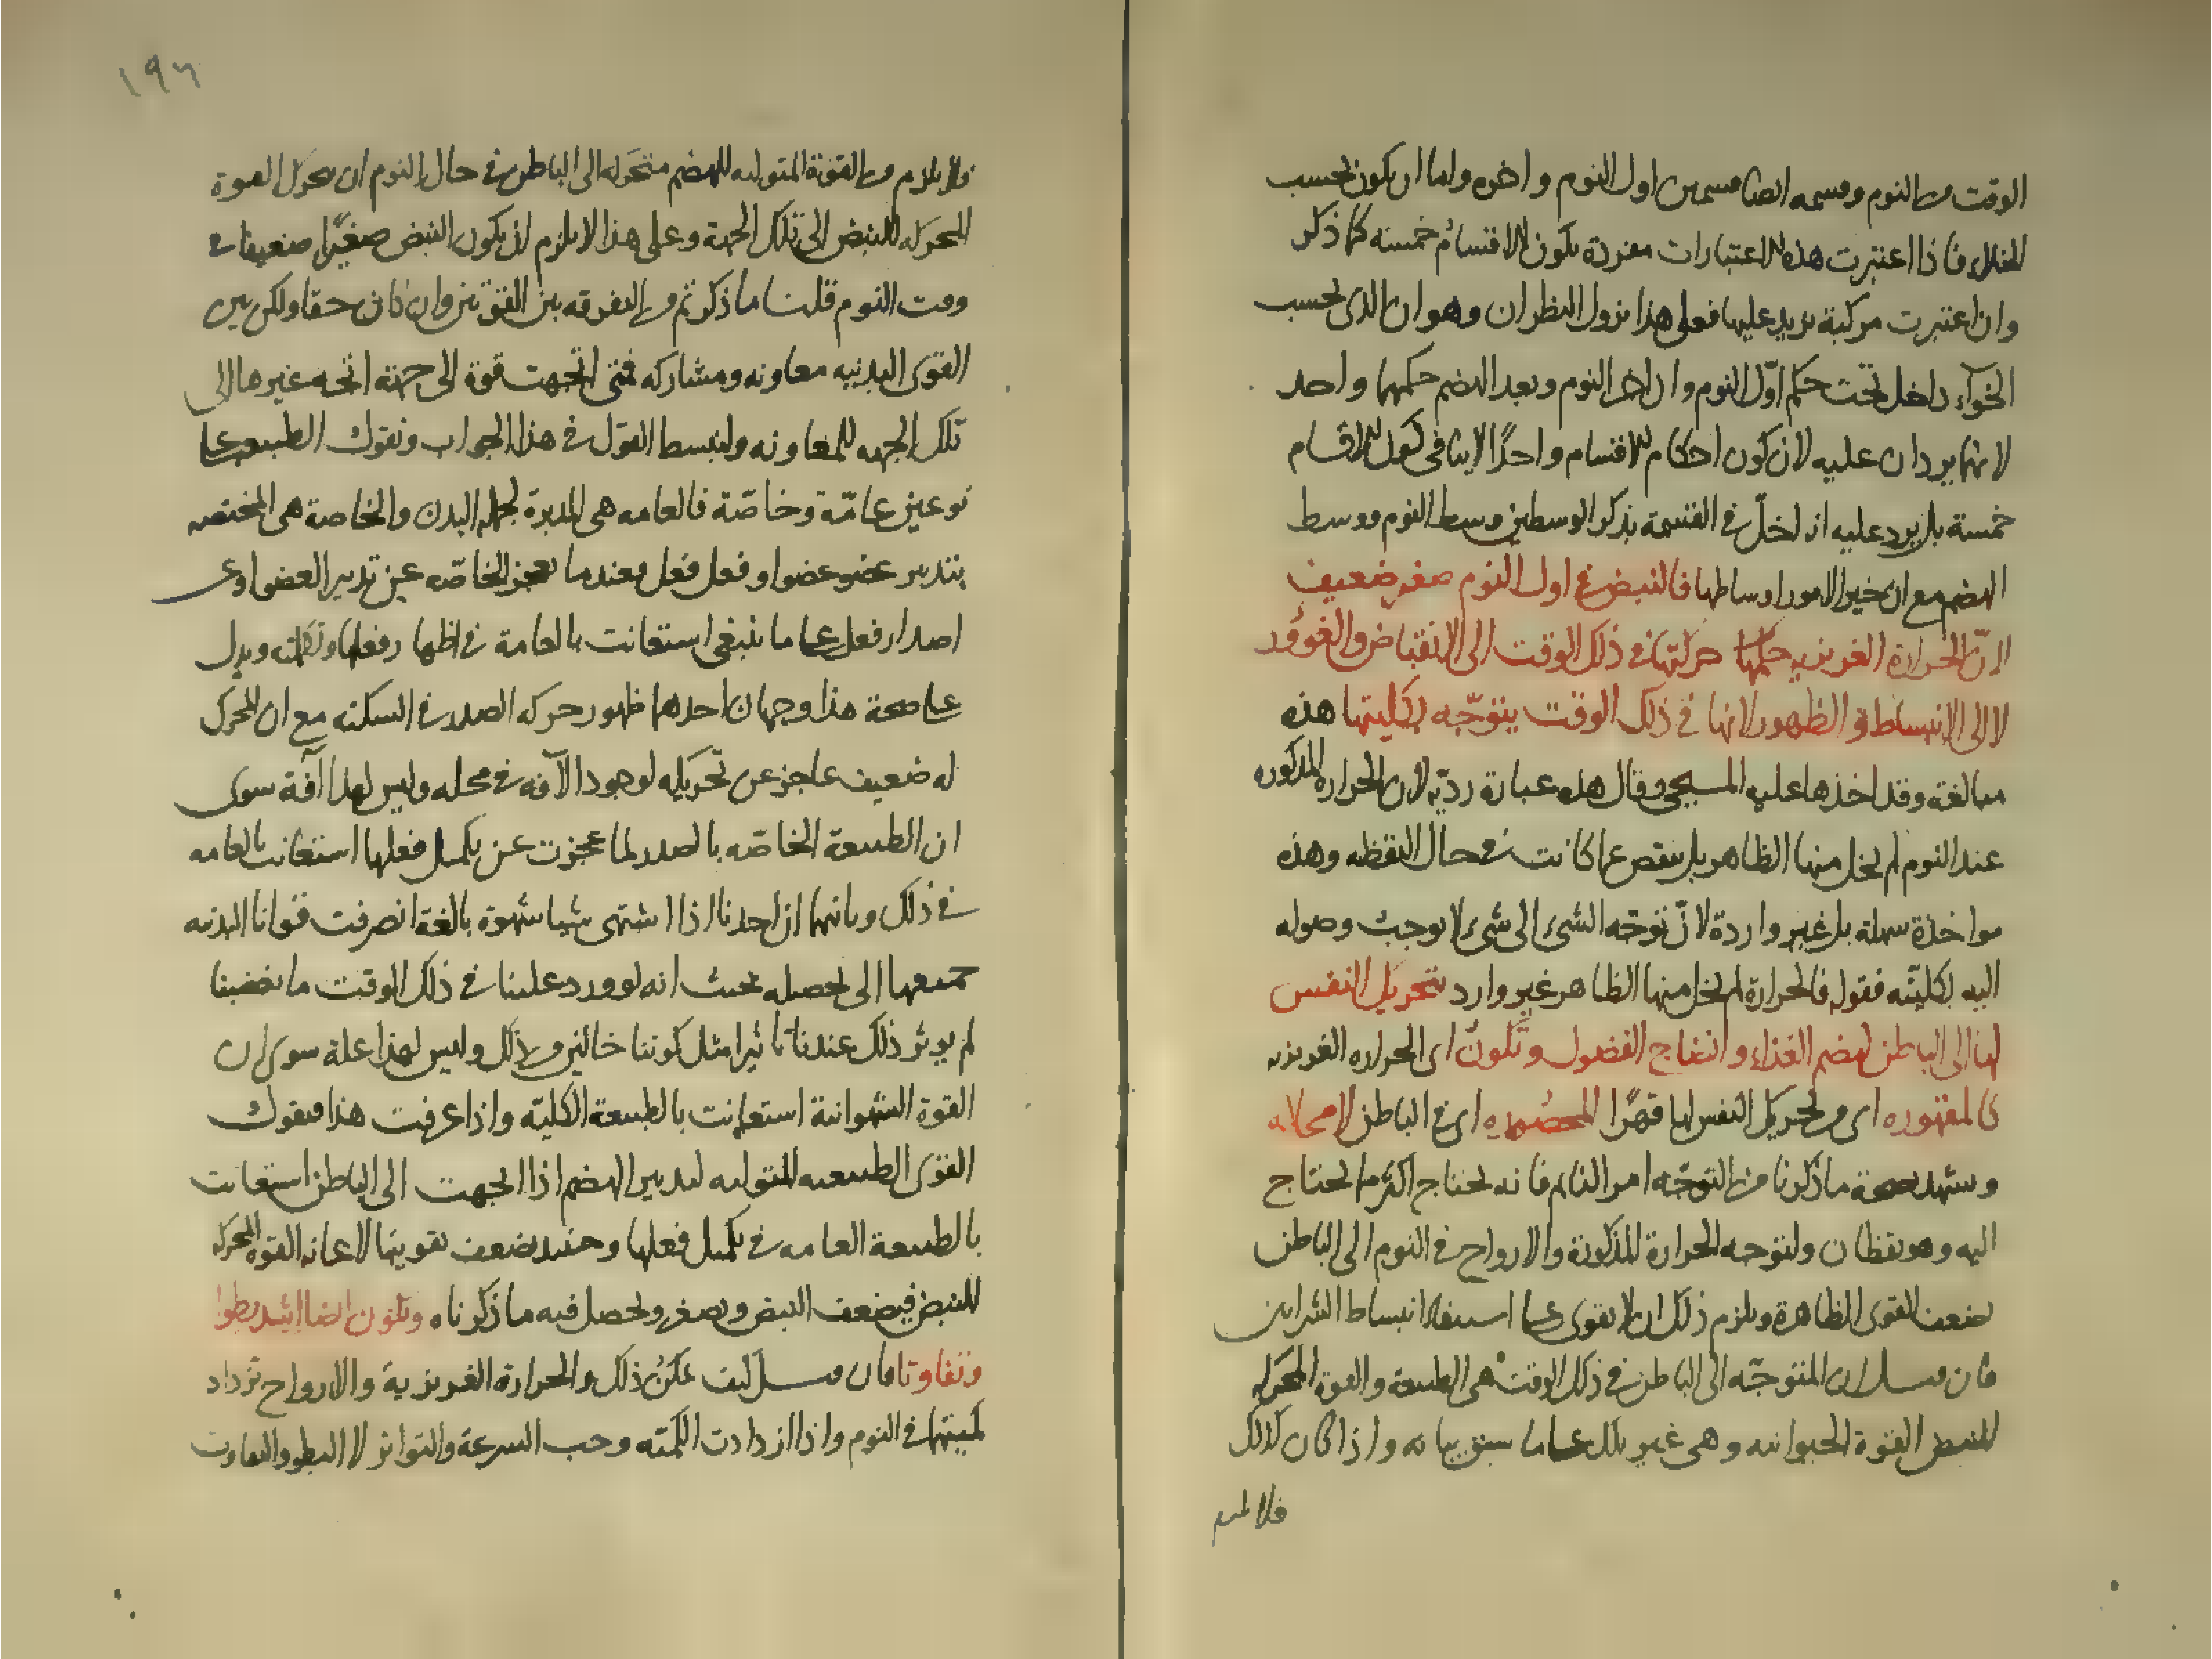 الوقت من النوم وقسمه ايضا قسمين اول النوم واخره واما ان يكون بحسب
الخلاء فاذا اعتبرت هذه الاعتبارات مفردة يكون الاقسام خمسة كما ذكر
وان اعتبرت مركبة يزيد عليها فعلى هذا يزول النظران وهو ان الذى بحسب
الخوآء داخل تحت حكم اوّل النوم وان اخر النوم وبعد الهضم حكمهما واحد
لانهما يردان عليه لان كون احكام الاقسام واحدًا لا ينافى كون الاقسام
خمسة بل يرد عليه انه اخلّ فى القسمة بذكر الوسطين وسط النوم ووسط
الهضم مع ان خير الامور اوساطها فالنبض فى اول النوم صغير ضعيف
لانّ الحرارة الغريزيه حكمها حركتها فى ذلك الوقت الى الانقباض والغوور
لا الى الانبساط والظهور لانها فى ذلك الوقت يتوجّه بكليتها هذه
مبالغة وقد اخذها عليه المسيحى وقال هذه عبارة رديّه لان الحراره المذكوره
عند النوم لم يخل منها الظاهر بل ينقص عما كانت فى حال اليقظه وهذه
مواخذة سهلة بل غير واردة لانّ توجّه الشىء الى شىء لا يوجب وصوله
اليه بكليّته فقوله فالحرارة لم يخل منها الظاهر غير وارد بتحريك النفس
لها الى الباطن لهضم الغذاء وانضاج الفضول وتكون اى الحراره الغريزيه
كالمقهوره اى من تحريك النفس لها قهرًا المحصُوره اى فى الباطن لا محاله
ويشهد بصحة ما ذكرنا من التوجّه امر النائم فانه يحتاج اكثر ما يحتاج
اليه وهو يقظان ولتوجه الحرارة المذكورة والارواح فى النوم الى الباطن
يضعف القوى الظاهرة ويلزم ذلك ان لا يقوى على استيفاء انبساط الشرايين
فان قيل ان المتوجّه الى الباطن فى ذلك الوقت هى الطبيعة والقوة المحركه
للنبض القوة الحيوانيه وهى غير تلك على ما سبق بيانه واذا كان كذلك
فلا يلزم
١٩٦
فلا يلزم من القوة المتوليه للهضم متحركه الى الباطن فى حال النوم ان يحرك القوة
المحركه للنبض الى تلك الجهة وعلى هذا لا يلزم ان يكون النبض صغيرًا ضعيفا فى
وقت النوم قلنا ما ذكرتم من التفرقه بين القوتين وان كان حقا ولكن بين
القوى البدنيه معاونه ومشاركه فمتى اتجهت قوة الى جهة اتجه غيرها الى
تلك الجهه للمعاونه ولنبسط القول فى هذا الجواب ونقول الطبيعه على
نوعين عامّة وخاصّة فالعامه هى المدبرة لجمله البدن والخاصة هى المختصه
بتدبير عضو عضو او فعل فعل فعندما تعجز الخاصّه عن تدبير العضو او عن
اصدار فعل على ما ينبغى استعانت بالعامة فى اظهار فعلها وتكملته ويدل
على صحة هذا وجهان احدهما ظهور حركه الصدر فى السكته مع ان المحرك
له ضعيف عاجز عن تحريكه لوجود الآفه فى محله وليس لهذا آفة سوى
ان الطبيعة الخاصّه بالصدر لما عجزت عن تكميل فعلها استعانت بالعامه
فى ذلك وثانيهما ان احدنا اذا اشتهى شيئا شهوة بالغة انصرفت قوانا البدنيه
جميعها الى تحصيله بحيث انه لو ورد علينا فى ذلك الوقت ما يغضبنا
لم يوثر ذلك عندنا تاثيرا مثل كوننا خالين من ذلك وليس لهذا علة سوى ان
القوة الشهوانية استعانت بالطبيعة الكليّه واذا عرفت هذا فنقول
القوى الطبيعيه المتوليه لتدبير الهضم اذا اتجهت الى الباطن استعانت
بالطبيعة العامه فى تكميل فعلها وحينئذ يضعف تقويتها لاعانه القوه المحركه
للنبض فيضعف النبض ويصغر ويحصل فيه ما ذكرناه ويكون ايضا اشد بطوا
وتفاوتا فان قيل كيف يمكن ذلك والحرارة الغريزية والارواح تزداد
كميتهما فى النوم واذا ازدادت الكميّه وجب السرعة والتواتر لا البطو والتفاوت